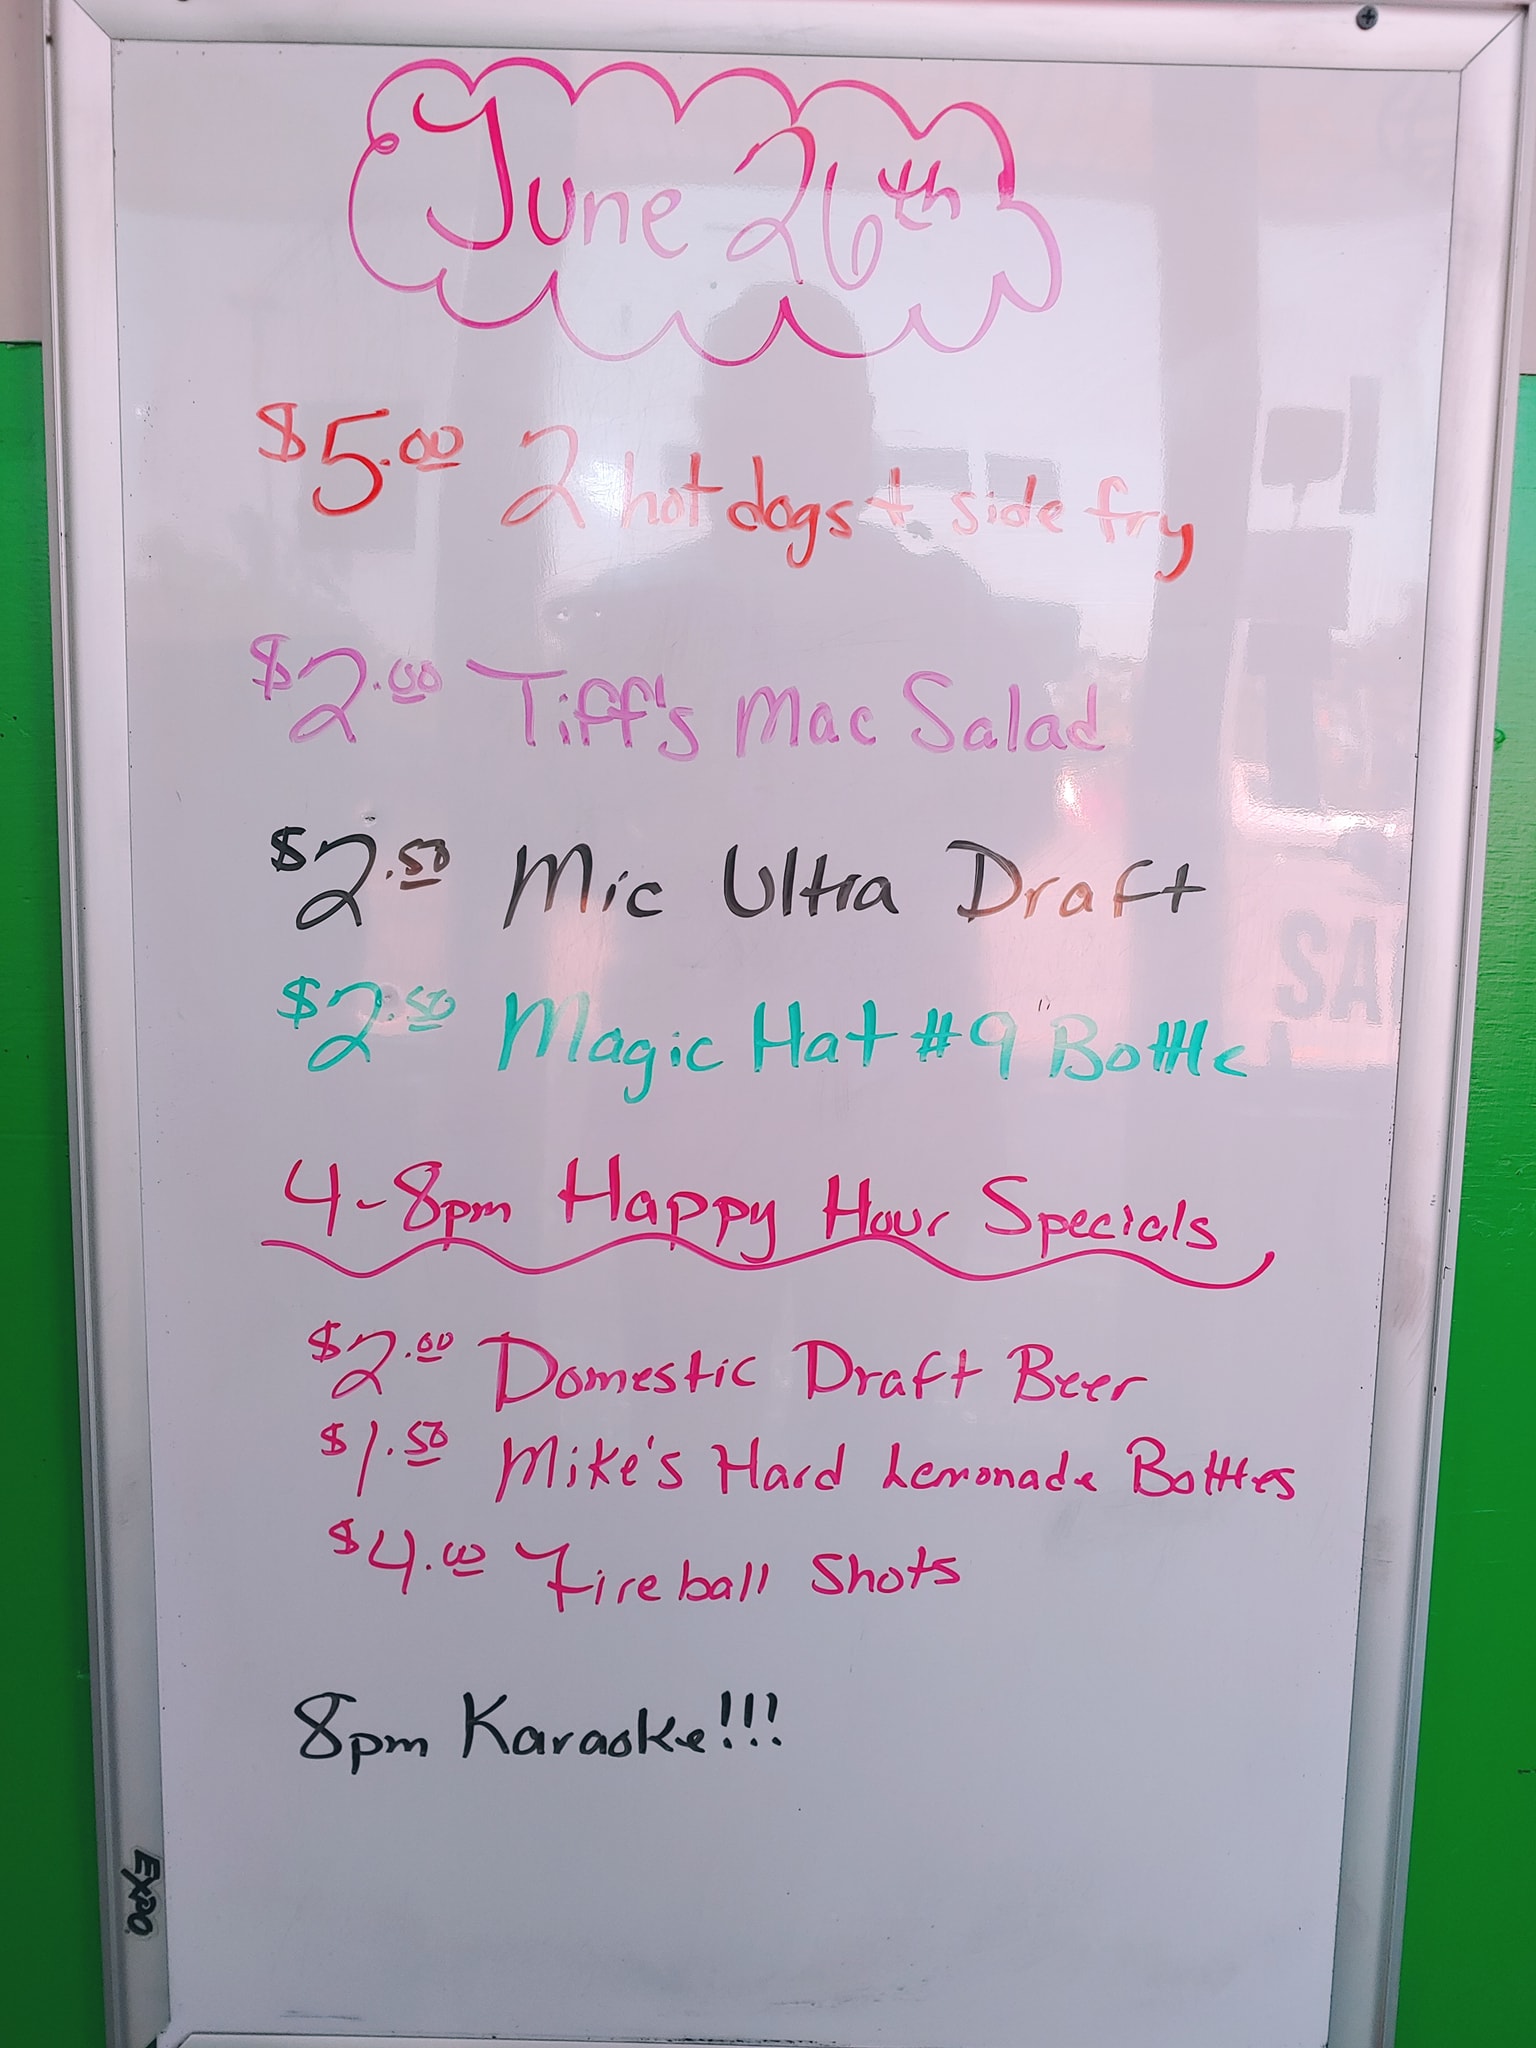 June 26th
$5.00 2 hot dogs + side fry
$2.00 Tiff's Mac Salad
$2.50 Mic Ultra Draft
$2.50 Magic Hat #9 Bottle
4-8pm Happy Hour Specials
$2.00 Domestic Draft Beer
$1.50 Mike's Hard Lemonade Bottles
$4.00 Fireball Shots
8pm Karaoke!!!
EXPO